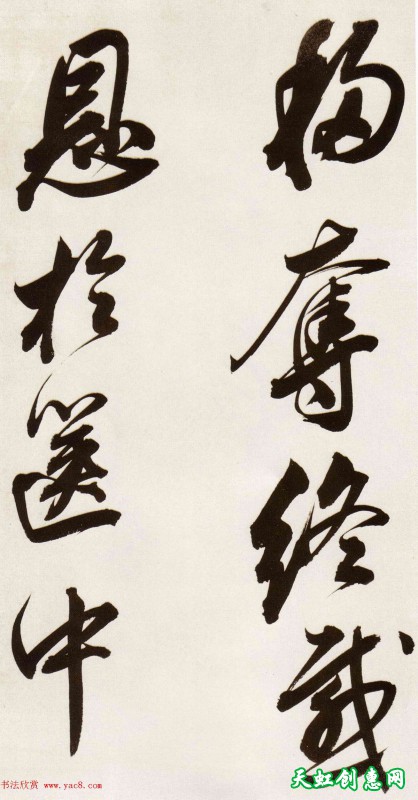 移奪終感
恩於篋中
书法欣赏 www.yac8.com
天虹创惠网